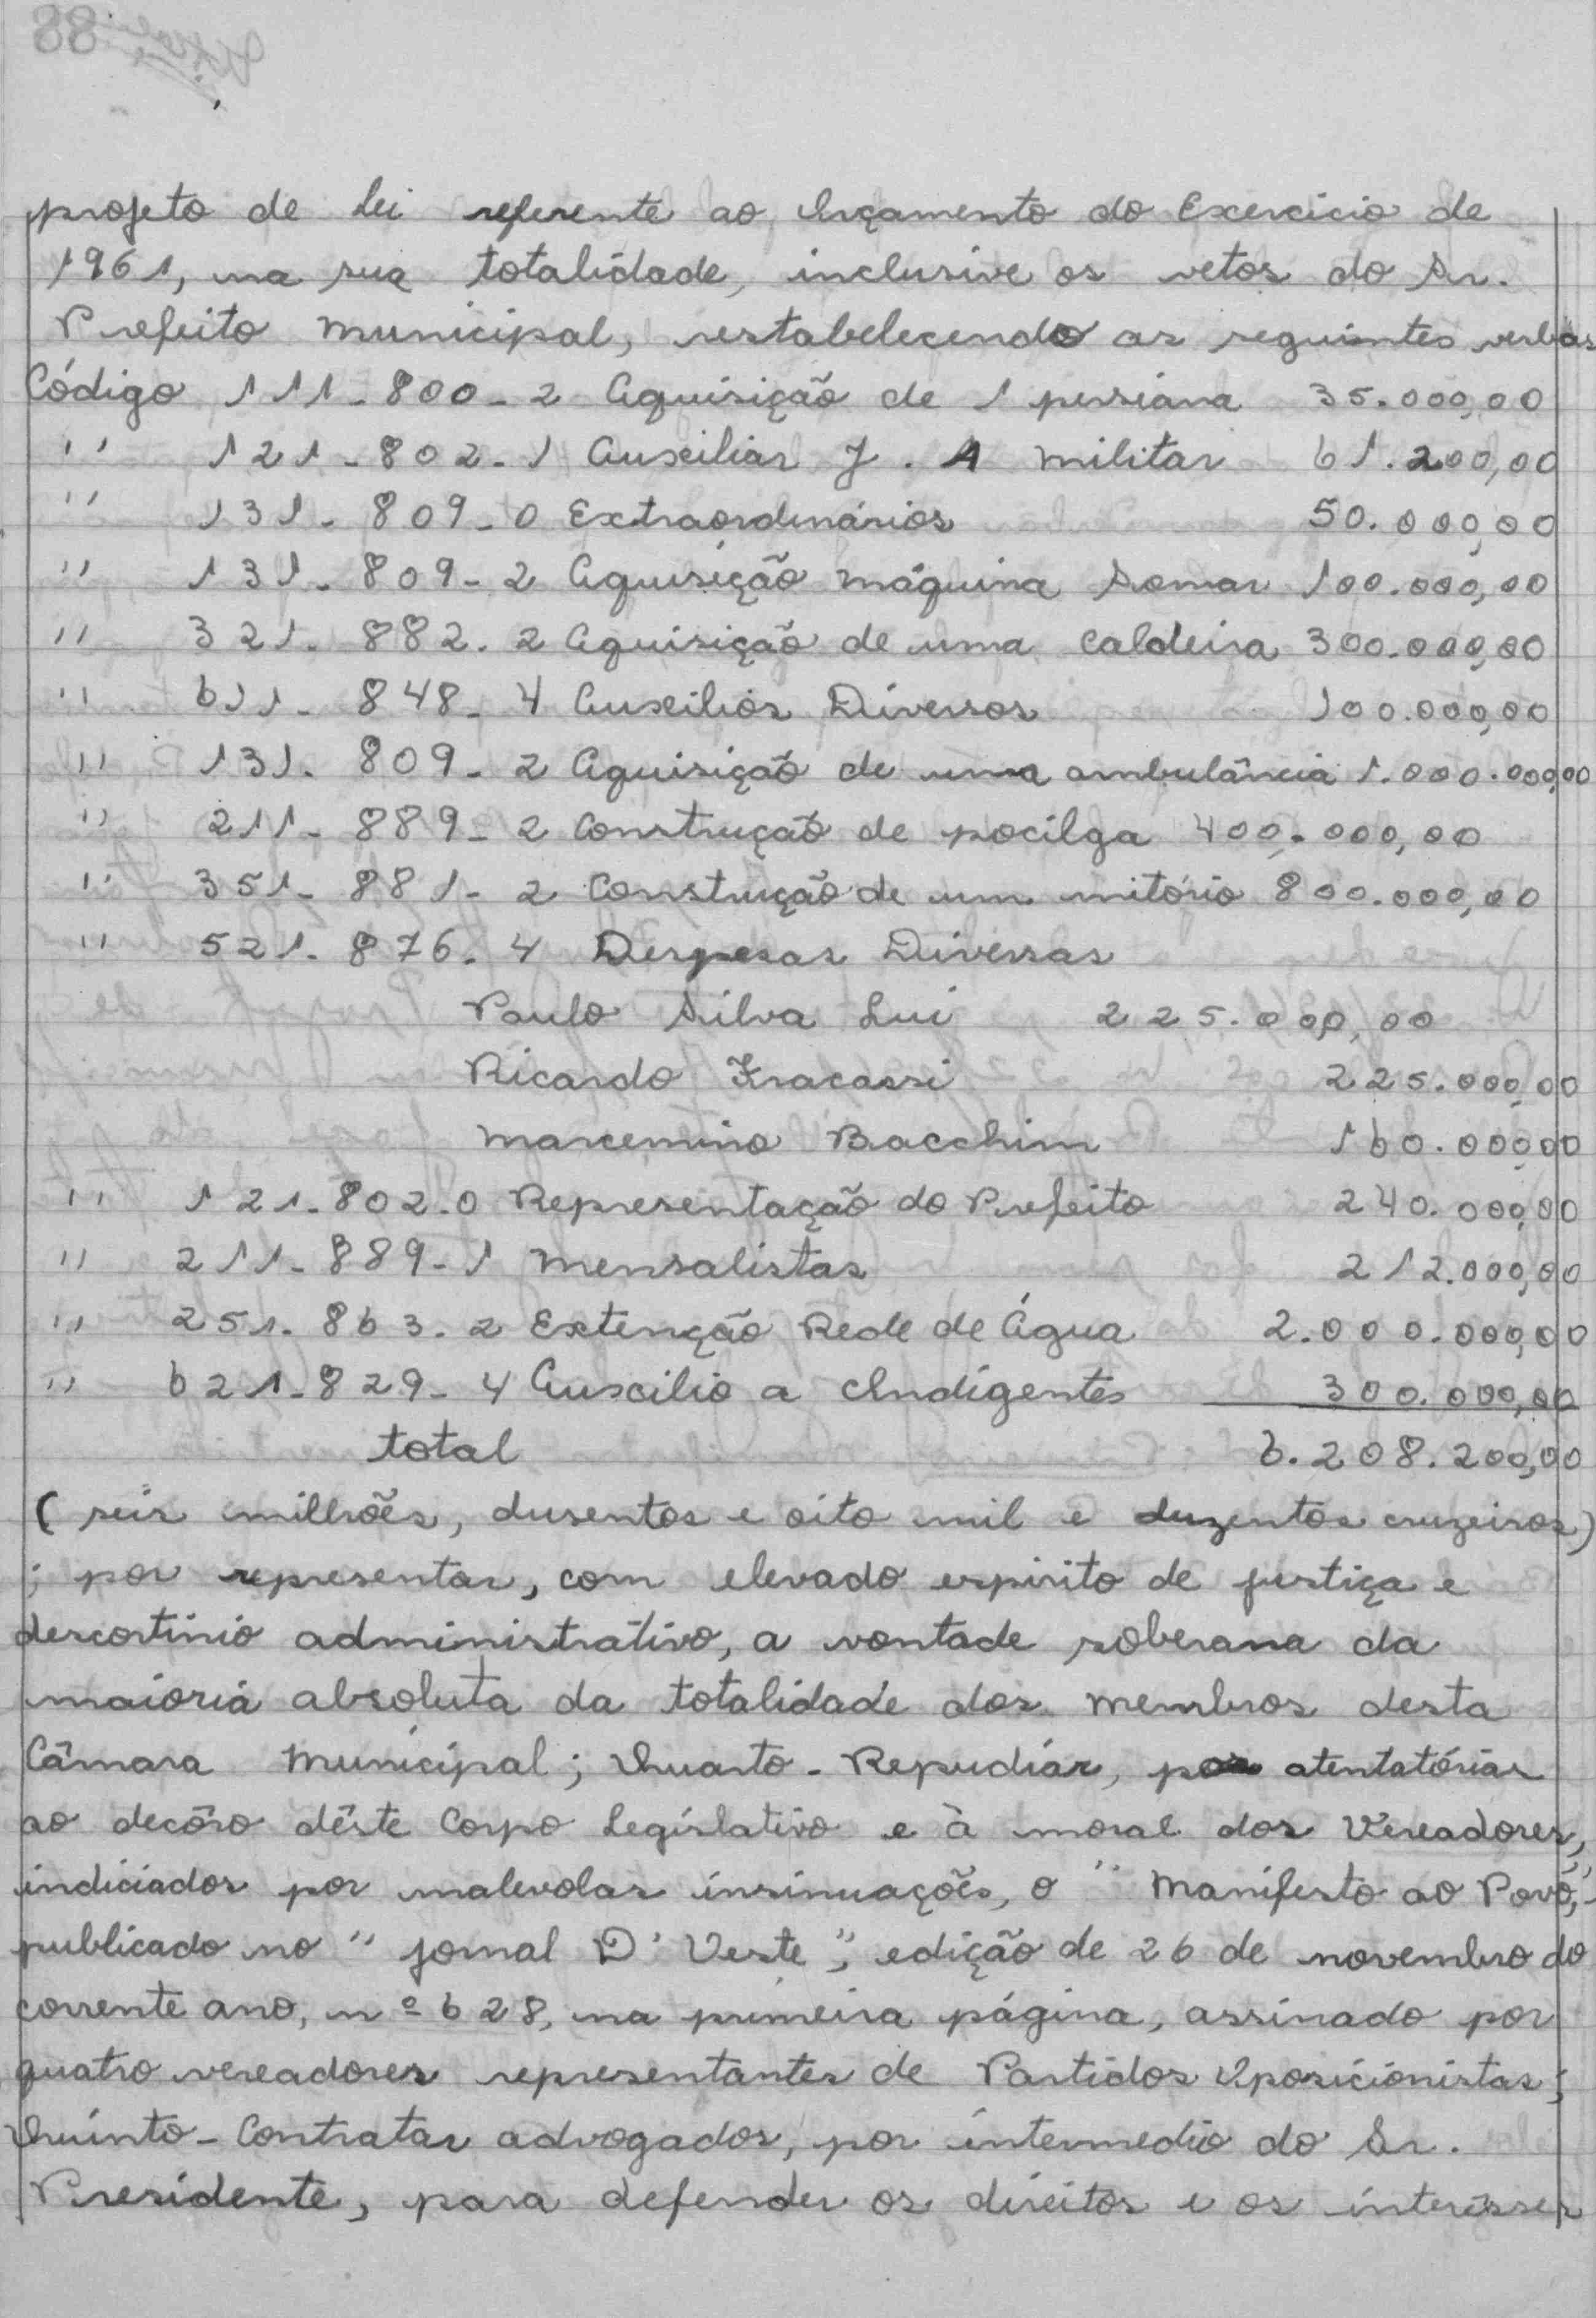 projeto de Lei referente ao Orçamento do Exercicio de
1961, na sua totalidade, inclusive os vetos do Sr.
Prefeito Municipal, restabelecendo as seguintes verbas
Código 111-800-2 Aquisição de 1 persiana 35.000,00
" 121-802-1 Auxiliar J. A Militar 61.200,00
" 131-809-0 Extraordinários 50.000,00
" 131-809-2 Aquisição Máquina Somar 100.000,00
" 321-882-2 Aquisição de uma Caldeira 300.000,00
" 611-848-4 Auxilios Diversos 100.000,00
" 131-809-2 Aquisição de uma ambulância 1.000.000,00
" 211-889-2 Construção de pocilga 400.000,00
" 351-881-2 Construção de um mitório 800.000,00
" 521-876-4 Despesas Diversas
Paulo Silva Lui 225.000,00
Ricardo Fracassi 225.000,00
Marcemino Bacchim 160.000,00
" 121-802-0 Representação do Prefeito 240.000,00
" 211-889-1 Mensalistas 212.000,00
" 251-863-2 Extenção Rede de Água 2.000.000,00
" 621-829-4 Auxcilio a Indigentes 300.000,00
total 6.208.200,00
(seis milhões, dusentos e oito mil e duzentos cruzeiros)
; por representar, com elevado espirito de justiça e
descortinio administrativo, a vontade soberana da
maioria absoluta da totalidade dos membros desta
Câmara Municipal; Quarto - Repudiar, por atentatórias
ao decôro dêste Corpo Legislativo e à moral dos Vereadores,
indiciados por malevolas insinuações, o "Manifesto ao Povo",
publicado no "Jornal D'Oeste", edição de 26 de novembro do
corrente ano, nº 628, na primeira página, assinado por
quatro vereadores representantes de Partidos Oposicionistas;
Quinto - Contratar advogados, por intermedio do Sr.
Presidente, para defender os direitos e os interêsses